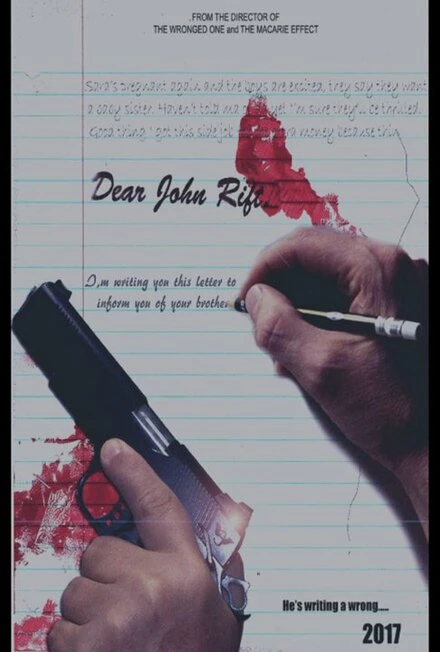 .FROM THE DIRECTOR OF
THE WRONGED ONE and THE MACARIE EFFECT
Sara's pregnant again and the boys are excited, they say they want
a baby sister. Haven't told ma yet I'm sure they'll be thrilled.
Good thing I got this side job money because
Dear John Rift,
I,m writing you this letter to
inform you of your brother
He's writing a wrong....
2017